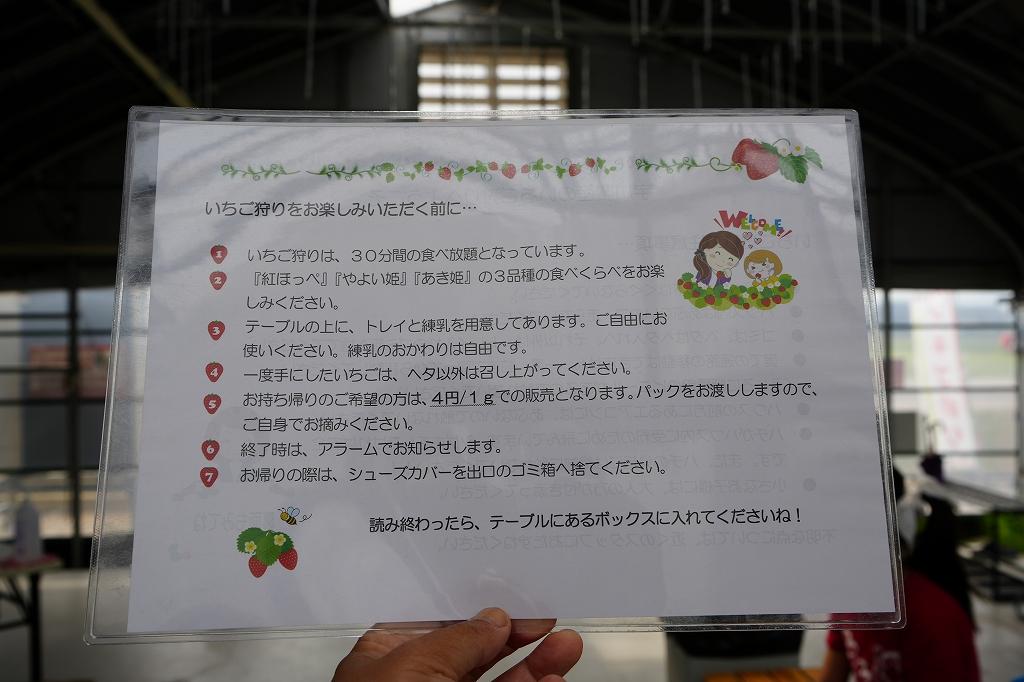 いちご狩りをお楽しみいただく前に…
WELCOME!
1 いちご狩りは、３０分間の食べ放題となっています。
2 『紅ほっぺ』『やよい姫』『あき姫』の３品種の食べくらべをお楽
しみください。
3 テーブルの上に、トレイと練乳を用意してあります。ご自由にお
使いください。練乳のおかわりは自由です。
4 一度手にしたいちごは、ヘタ以外は召し上がってください。
5 お持ち帰りのご希望の方は、４円/１ｇでの販売となります。パックをお渡ししますので、
ご自身でお摘みください。
6 終了時は、アラームでお知らせします。
7 お帰りの際は、シューズカバーを出口のゴミ箱へ捨てください。
読み終わったら、テーブルにあるボックスに入れてくださいね！